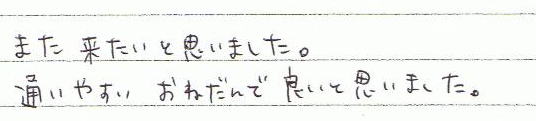 また 来たいと思いました。
通いやすい おねだんで 良いと思いました。